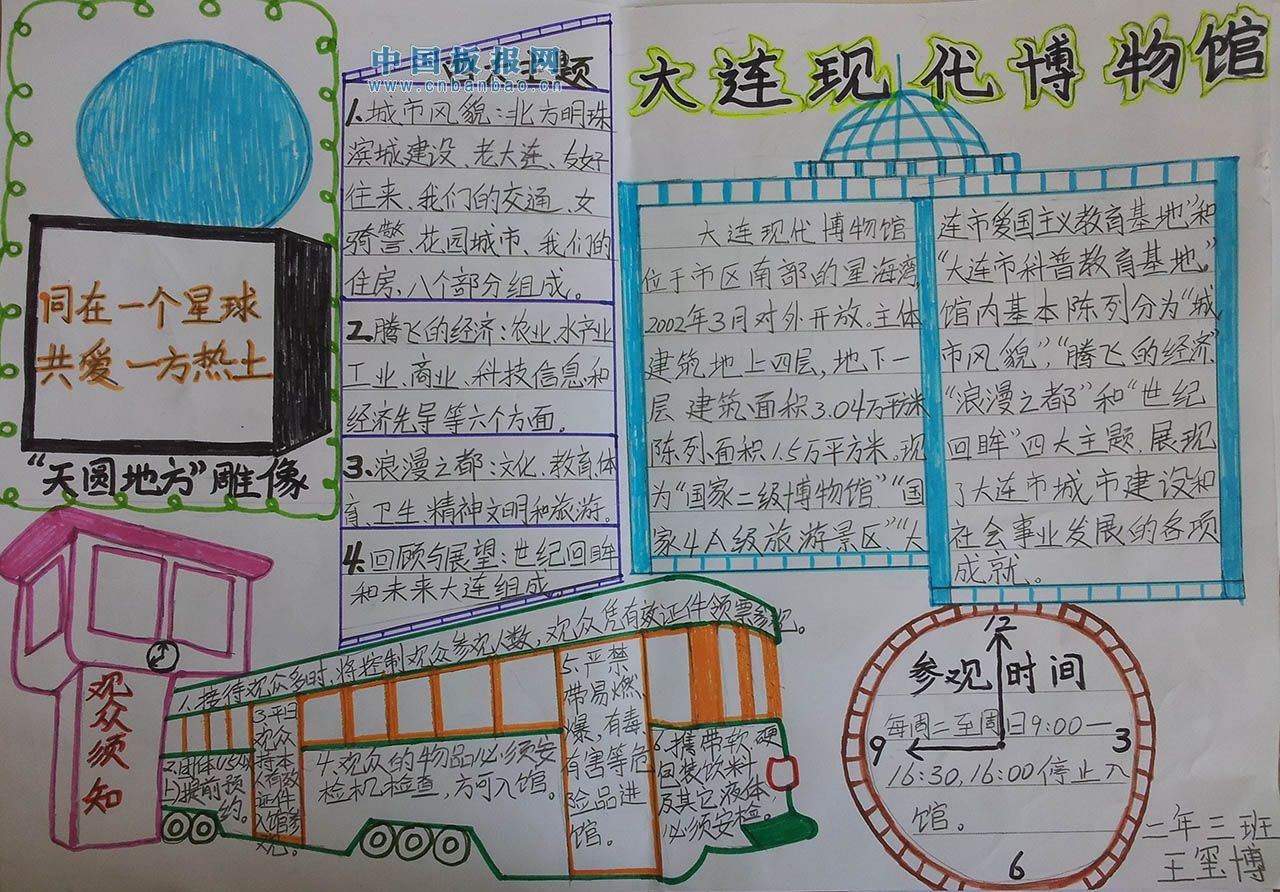 大连现代博物馆
中国板报网
www.cnbanbao.cn
四大主题
1.城市风貌:北方明珠
滨城建设、老大连、友好
往来、我们的交通、女
骑警、花园城市、我们的
住房、八个部分组成。
2.腾飞的经济:农业、水产业
工业、商业、科技信息和
经济先导等六个方面。
3、浪漫之都:文化、教育体
育、卫生、精神文明和旅游。
4.回顾与展望:世纪回眸
和未来大连组成
同在一个星球
共爱一方热土
“天圆地方”雕像
大连现代博物馆
位于市区南部的星海湾
2002年3月对外开放。主体
建筑地上四层,地下一
层 建筑面积3.04万平方米
陈列面积1.5万平方米。现
为“国家二级博物馆”“国
家4A级旅游景区”“大
连市爱国主义教育基地”和
“大连市科普教育基地。”
馆内基本陈列分为“城
市风貌”,“腾飞的经济”
“浪漫之都”和“世纪
回眸”四大主题、展现
了大连市城市建设和
社会事业发展的各项
成就、。
观众须知
1、接待观众多时,将控制观众参观人数,观众凭有效证件领票参观。
2、团体(15以
上)提前预
约。
3.平日
观众
持本
人有效
证件
入馆参
观。
4、观众的物品必须安
检机检查,方可入馆。
5、严禁
带易燃、
爆、有毒
有害等危
险品进
馆。
6、携带软、硬
包装饮料
及其它液体,
必须安检。
12
参观时间
每周二至周日9:00—
9
3
16:30,16:00停止入
馆。
6
二年三班
王玺博